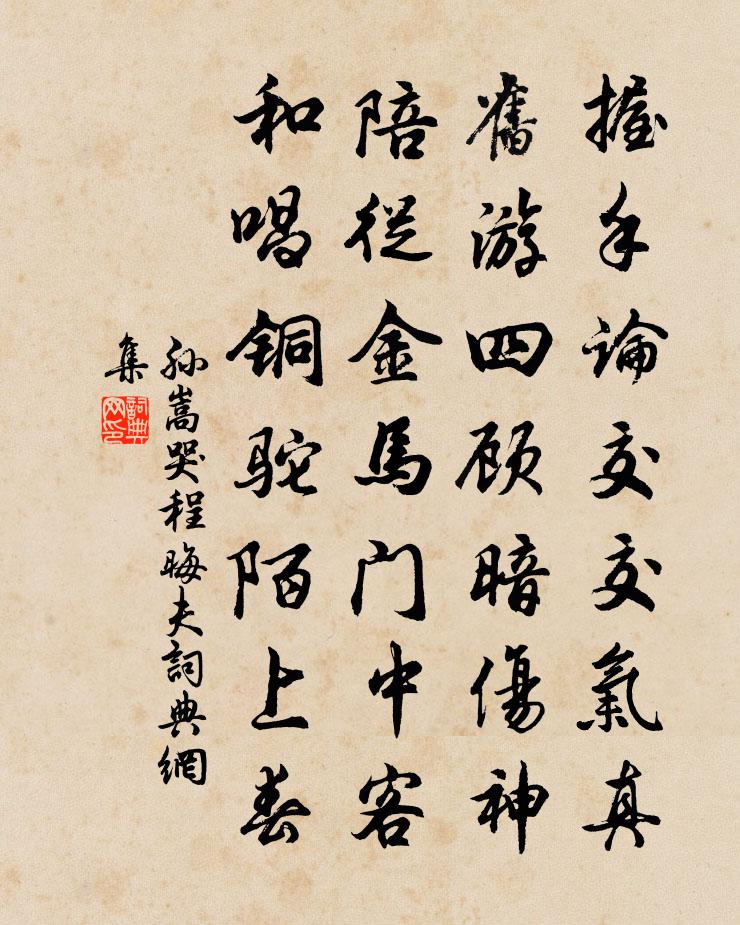 握手論交交氣真
舊游四顾暗傷神
陪從金馬门中客
和唱铜駝陌上春
孙嵩哭程晦夫詞典網
集
詞典
网印